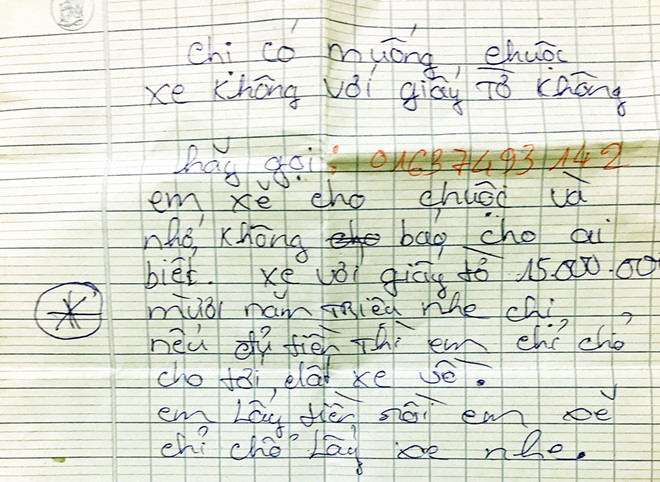 chị có muống, chuộc
xe không với giấy tờ không
hãy gọi: 01637493142
em xẽ cho chuộc và
nhớ, không cho báo cho ai
biết. xe với giấy tờ 15.000.00
mười năm triệu nhe chị
nếu đủ tiền thì em chỉ chỏ
cho tới, dắt xe về.
em lấy tiền rồi em xẽ
chỉ chỗ lấy xe nhe.